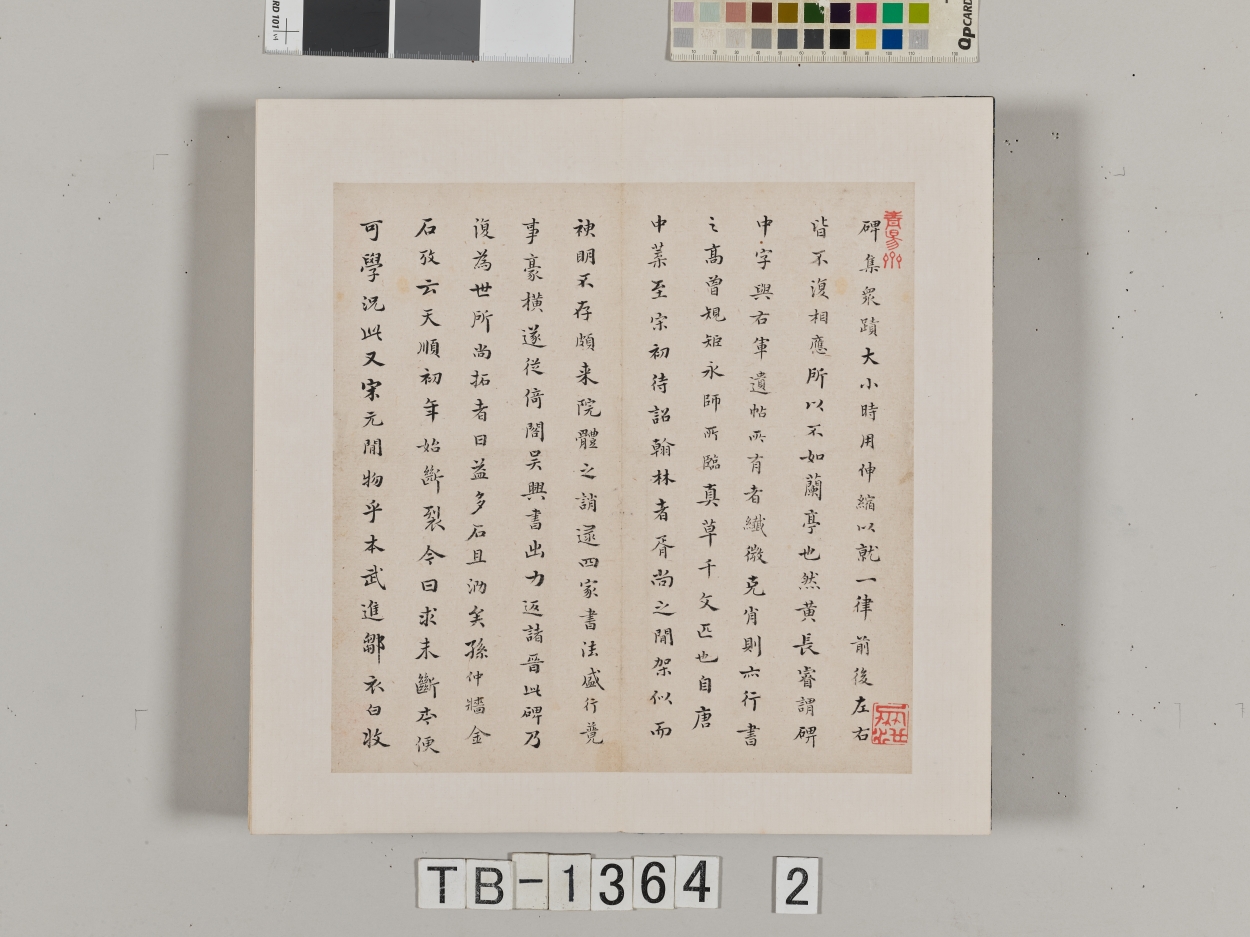 碑集衆蹟大小時用伸縮以就一律前後左右
皆不復相應所以不如蘭亭也然黄長睿謂碑
中字與右軍遺帖所有者纖微克肖則亦行書
之髙曽規矩永師所臨真草千文匹也自唐
中葉至宋初待詔翰林者胥尚之閒架似而
神明不存頗来院體之誚逮四家書法盛行覺
事豪横遂從倚閣吴興書出力返諸晋此碑乃
復為世所尚拓者日益多石且泐矣孫仲牆金
石攷云天順初年始斷裂今日求未斷本便
可學況此又宋元閒物乎本武進鄒衣白收
TB-1364 2
QPCARD
RD 101